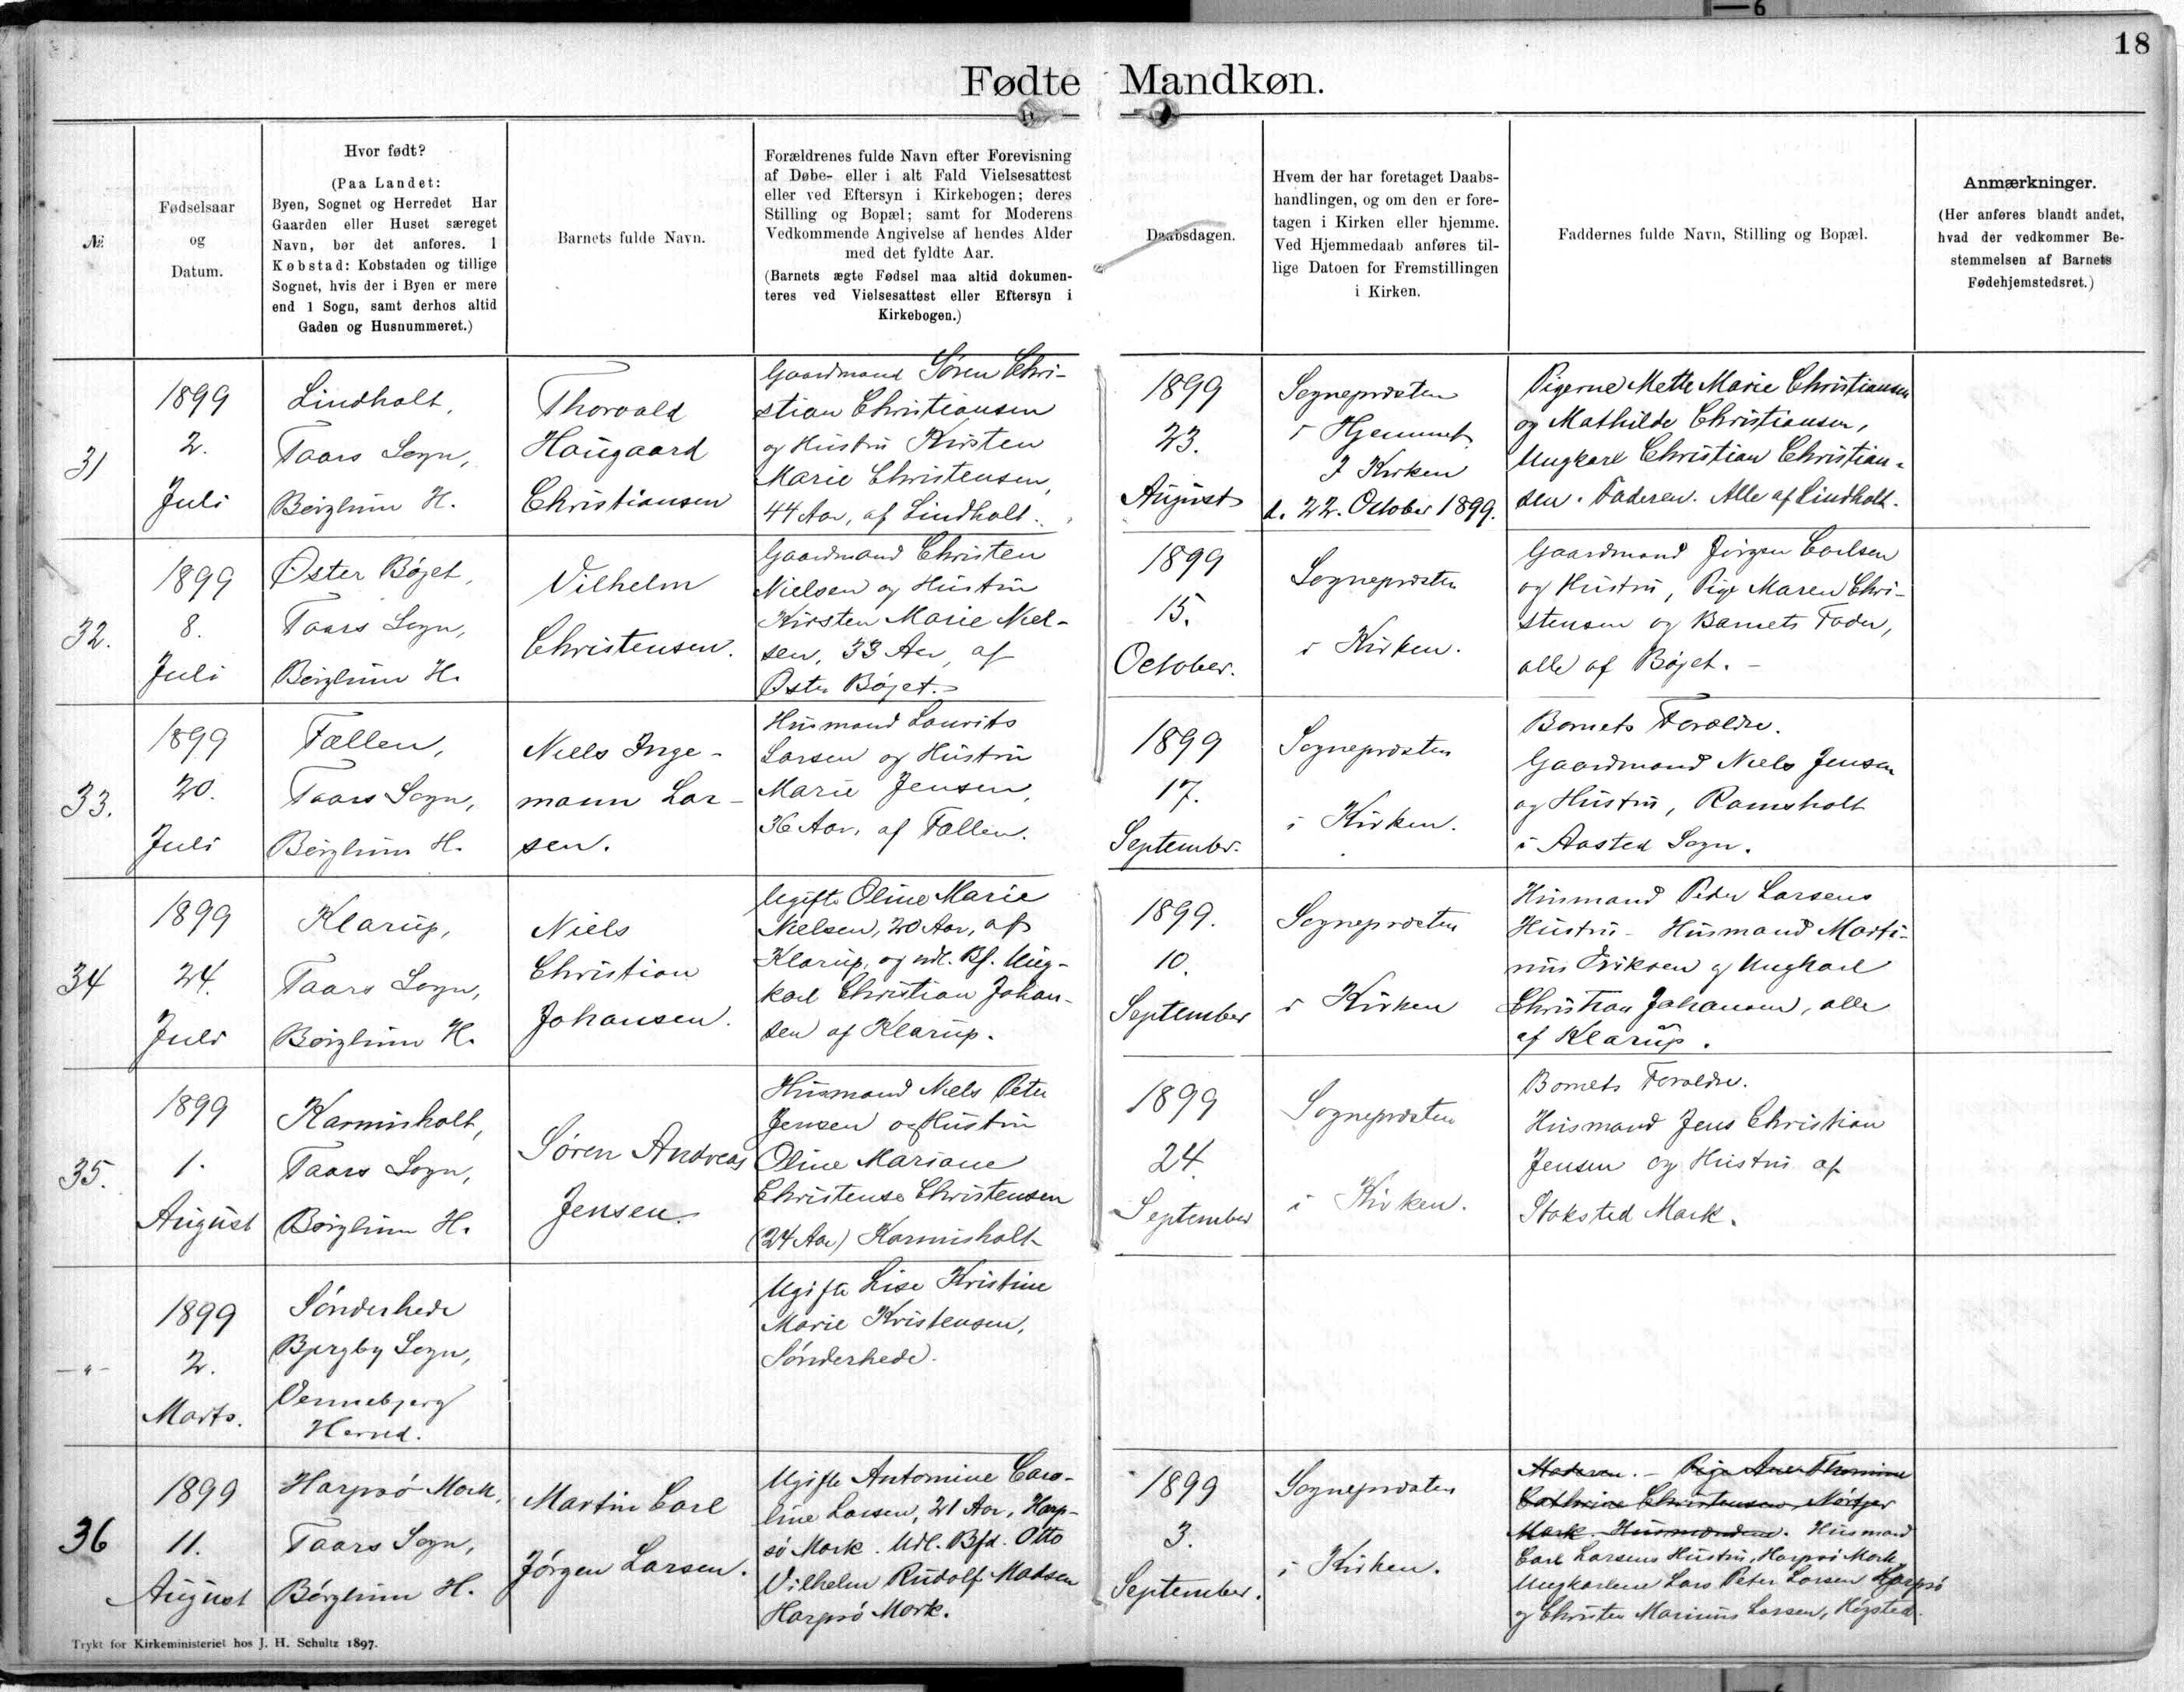 6
18
Fødte Mandkøn.
№
Fødselsaar
og
Datum.
Hvor født?
(Paa Landet:
Byen, Sognet og Herredet Har
Gaarden eller Huset særeget
Navn, bør det anføres. I
Købstad: Købstaden og tillige
Sognet, hvis der i Byen er mere
end 1 Sogn, samt derhos altid
Gaden og Husnummeret.)
Barnets fulde Navn.
Forældrenes fulde Navn efter Forevisning
af Døbe- eller i alt Fald Vielsesattest
eller ved Eftersyn i Kirkebogen; deres
Stilling og Bopæl; samt for Moderens
Vedkommende Angivelse af hendes Alder
med det fyldte Aar.
(Barnets ægte Fødsel maa altid dokumen-
teres ved Vielsesattest eller Eftersyn i
Kirkebogen.)
Daabsdagen.
Hvem der har foretaget Daabs-
handlingen, og om den er fore-
tagen i Kirken eller hjemme.
Ved Hjemmedaab anføres til-
lige Datoen for Fremstillingen
i Kirken.
Faddernes fulde Navn, Stilling og Bopæl.
Anmærkninger.
(Her anføres blandt andet,
hvad der vedkommer Be-
stemmelsen af Barnets
Fødehjemstedsret.)
31
1899
2.
Juli
Lindholt,
Taars Sogn,
Børglum H.
Thorvald
Haugaard
Christiansen
Gaardmand Søren Chri-
stian Christiansen
og Hustru Kirsten
Marie Christensen,
44 Aar, af Lindholt.
1899
23.
August
Sognepræsten
i Hjemmet
I Kirken
d. 22. October 1899.
Pigerne Mette Marie Christiansen
og Mathilde Christiansen,
Ungkarl Christian Christian-
sen. Faderen. Alle af Lindholt.
32.
1899
8.
Juli
Øster Bøjet,
Taars Sogn,
Børglum H.
Vilhelm
Christensen.
Gaardmand Christen
Nielsen og Hustru
Kirsten Marie Niel-
sen, 33 Aar, af
Øster Bøjet.
1899
15.
October.
Sognepræsten
i Kirken.
Gaardmand Jørgen Carlsen
og Hustru, Pige Maren Chri-
stensen og Barnets Fader,
alle af Bøjet. -
33.
1899
20.
Juli
Fællen,
Taars Sogn,
Børglum H.
Niels Inge-
mann Lar-
sen.
Husmand Laurits
Larsen og Hustru
Marie Jensen,
36 Aar, af Fællen.
1899
17.
September.
Sognepræsten
i Kirken.
Barnets Forældre.
Gaardmand Niels Jensen
og Hustru, Ramsholt
i Aasted Sogn.
34
1899
24.
Juli
Klarup,
Taars Sogn,
Børglum H.
Niels
Christian
Johansen.
Ugifte Oline Marie
Nielsen, 20 Aar, af
Klarup, og udl. Bf. Ung-
karl Christian Johan-
sen af Klarup.
1899.
10.
September
Sognepræsten
i Kirken
Husmand Peder Larsens
Hustru - Husmand Marti-
nus Eriksen og Ungkarl
Christian Johansen, alle
af Klarup.
35.
1899
1.
August
Karmisholt,
Taars Sogn,
Børglum H.
Søren Andreas
Jensen.
Husmand Niels Peter
Jensen og Hustru
Oline Mariane
Christense Christensen
(24 Aar) Karmisholt
1899
24.
September
Sognepræsten
i Kirken.
Barnets Forældre.
Husmand Jens Christian
Jensen og Hustru af
Stoksted Mark.
-"-
1899
2.
Marts.
Sønderhede
Bjergby Sogn,
Vennebjerg
Herred.
Ugifte Lise Kristine
Marie Kristensen,
Sønderhede.
36
1899
11.
August
Harpsø Mark,
Taars Sogn,
Børglum H.
Martin Carl
Jørgen Larsen.
Ugifte Antomine Caro-
line Larsen, 21 Aar, Harp-
sø Mark. Udl. Bfd. Otto
Vilhelm Rudolf Madsen
Harpsø Mark.
1899
3.
September.
Sognepræsten
i Kirken.
Moderen. - Pige Ane Thomine
Cathrine Christensen, Nørtjer
Mark. Husmanden. Husmand
Carl Larsens Hustru, Harpsø Mark,
Ungkarlene Lars Peter Larsen Harpsø
og Christen Marinus Larsen, Høgsted.
Trykt for Kirkeministeriet hos J. H. Schultz 1897.